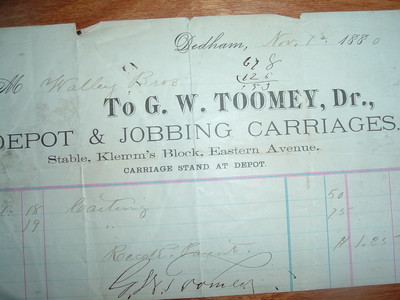 Dedham, Nov. 1st 1880
M Walley Bros
To G. W. TOOMEY, Dr.,
DEPOT & JOBBING CARRIAGES.
Stable, Klemm's Block, Eastern Avenue.
CARRIAGE STAND AT DEPOT.
18 Carting 50
19 " 75
Recd. Payt. 1.25
G. W. Toomey